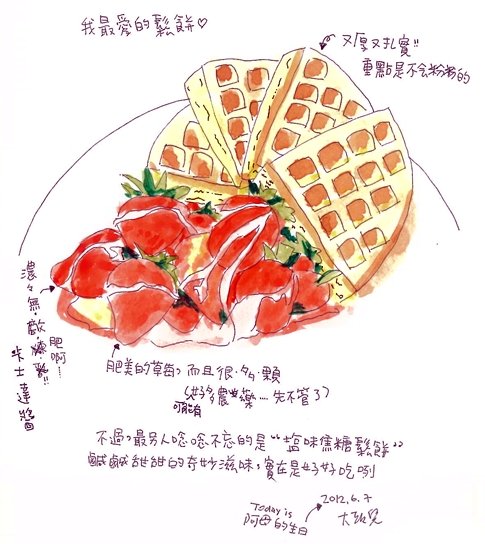 我最愛的鬆餅♡
又厚又扎實!!
重點是不会粉粉的
濃々無・敵・爆・乳!!
卡士達醬
肥啊……
肥美的草莓，而且很・多・顆
(好多農藥…先不管了)
可能有
不過，最另人唸唸不忘的是"塩味焦糖鬆餅"
鹹鹹甜甜的奇妙滋味，實在是好好吃咧
Today is
阿母的生日
2012.6.7